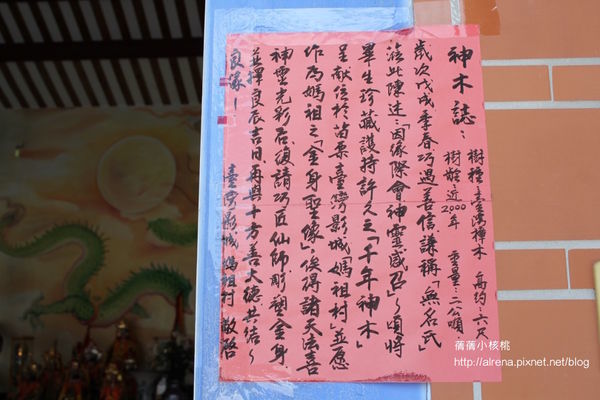 神木誌：
樹種：臺灣樟木 高約：六尺
樹齡：近2000年 重量：二公噸
歲次戊戌季春巧遇善信謙稱「無名氏」
蒞此陳述：「因緣際會神靈感召」～頃將
畢生珍藏護持許久之「千年神木」
呈獻信於苗栗臺灣影城「媽祖村」並願
作為媽祖之「金身聖像」俟得諸天法喜
神靈光彩后，復請巧匠仙師彫塑金身
並擇良辰吉日，再與十方善大德共結～
良緣！
臺灣影城 媽祖村 敬啓
蒨蒨小核桃
http://alrena.pixnet.net/blog